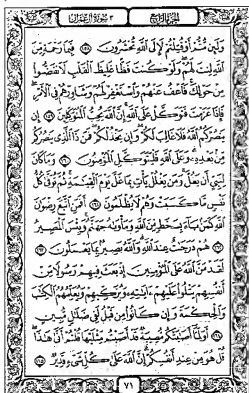 الجزء الرابع ٣ سورة آل عمران
وَلَئِن مُّتُّمْ أَوْ قُتِلْتُمْ لَإِلَى اللَّهِ تُحْشَرُونَ ١٥٨ فَبِمَا رَحْمَةٍ مِّنَ
اللَّهِ لِنتَ لَهُمْ وَلَوْ كُنتَ فَظًّا غَلِيظَ الْقَلْبِ لَانفَضُّوا
مِنْ حَوْلِكَ فَاعْفُ عَنْهُمْ وَاسْتَغْفِرْ لَهُمْ وَشَاوِرْهُمْ فِي الْأَمْرِ
فَإِذَا عَزَمْتَ فَتَوَكَّلْ عَلَى اللَّهِ إِنَّ اللَّهَ يُحِبُّ الْمُتَوَكِّلِينَ ١٥٩ إِن
يَنصُرْكُمُ اللَّهُ فَلَا غَالِبَ لَكُمْ وَإِن يَخْذُلْكُمْ فَمَن ذَا الَّذِي يَنصُرُكُم
مِّن بَعْدِهِ وَعَلَى اللَّهِ فَلْيَتَوَكَّلِ الْمُؤْمِنُونَ ١٦٠ وَمَا كَانَ
لِنَبِيٍّ أَن يَغُلَّ وَمَن يَغْلُلْ يَأْتِ بِمَا غَلَّ يَوْمَ الْقِيَٰمَةِ ثُمَّ تُوَفَّىٰ كُلُّ
نَفْسٍ مَّا كَسَبَتْ وَهُمْ لَا يُظْلَمُونَ ١٦١ أَفَمَنِ اتَّبَعَ رِضْوَٰنَ
اللَّهِ كَمَن بَاءَ بِسَخَطٍ مِّنَ اللَّهِ وَمَأْوَىٰهُ جَهَنَّمُ وَبِئْسَ الْمَصِيرُ
١٦٢ هُمْ دَرَجَٰتٌ عِندَ اللَّهِ وَاللَّهُ بَصِيرٌ بِمَا يَعْمَلُونَ ١٦٣
لَقَدْ مَنَّ اللَّهُ عَلَى الْمُؤْمِنِينَ إِذْ بَعَثَ فِيهِمْ رَسُولًا مِّنْ
أَنفُسِهِمْ يَتْلُوا عَلَيْهِمْ ءَايَٰتِهِ وَيُزَكِّيهِمْ وَيُعَلِّمُهُمُ الْكِتَٰبَ
وَالْحِكْمَةَ وَإِن كَانُوا مِن قَبْلُ لَفِي ضَلَٰلٍ مُّبِينٍ
١٦٤ أَوَلَمَّا أَصَٰبَتْكُم مُّصِيبَةٌ قَدْ أَصَبْتُم مِّثْلَيْهَا قُلْتُمْ أَنَّىٰ هَٰذَا
قُلْ هُوَ مِنْ عِندِ أَنفُسِكُمْ إِنَّ اللَّهَ عَلَىٰ كُلِّ شَيْءٍ قَدِيرٌ ١٦٥
٧١